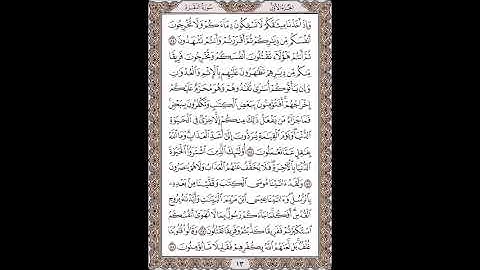 الجزء الأول
سورة البقرة
وَإِذْ أَخَذْنَا مِيثَٰقَكُمْ لَا تَسْفِكُونَ دِمَآءَكُمْ وَلَا تُخْرِجُونَ
أَنفُسَكُم مِّن دِيَٰرِكُمْ ثُمَّ أَقْرَرْتُمْ وَأَنتُمْ تَشْهَدُونَ ٨٤
ثُمَّ أَنتُمْ هَٰٓؤُلَآءِ تَقْتُلُونَ أَنفُسَكُمْ وَتُخْرِجُونَ فَرِيقًا
مِّنكُم مِّن دِيَٰرِهِمْ تَظَٰهَرُونَ عَلَيْهِم بِٱلْإِثْمِ وَٱلْعُدْوَٰنِ
وَإِن يَأْتُوكُمْ أُسَٰرَىٰ تُفَٰدُوهُمْ وَهُوَ مُحَرَّمٌ عَلَيْكُمْ
إِخْرَاجُهُمْ أَفَتُؤْمِنُونَ بِبَعْضِ ٱلْكِتَٰبِ وَتَكْفُرُونَ بِبَعْضٍ
فَمَا جَزَآءُ مَن يَفْعَلُ ذَٰلِكَ مِنكُمْ إِلَّا خِزْىٌ فِى ٱلْحَيَوٰةِ
ٱلدُّنْيَا وَيَوْمَ ٱلْقِيَٰمَةِ يُرَدُّونَ إِلَىٰٓ أَشَدِّ ٱلْعَذَابِ وَمَا ٱللَّهُ
بِغَٰفِلٍ عَمَّا تَعْمَلُونَ ٨٥ أُو۟لَٰٓئِكَ ٱلَّذِينَ ٱشْتَرَوُا۟ ٱلْحَيَوٰةَ
ٱلدُّنْيَا بِٱلْءَاخِرَةِ فَلَا يُخَفَّفُ عَنْهُمُ ٱلْعَذَابُ وَلَا هُمْ يُنصَرُونَ
٨٦ وَلَقَدْ ءَاتَيْنَا مُوسَى ٱلْكِتَٰبَ وَقَفَّيْنَا مِنۢ بَعْدِهِۦ
بِٱلرُّسُلِ وَءَاتَيْنَا عِيسَى ٱبْنَ مَرْيَمَ ٱلْبَيِّنَٰتِ وَأَيَّدْنَٰهُ بِرُوحِ
ٱلْقُدُسِ أَفَكُلَّمَا جَآءَكُمْ رَسُولٌۢ بِمَا لَا تَهْوَىٰٓ أَنفُسُكُمُ
ٱسْتَكْبَرْتُمْ فَفَرِيقًا كَذَّبْتُمْ وَفَرِيقًا تَقْتُلُونَ ٨٧ وَقَالُوا۟ قُلُوبُنَا
غُلْفٌۢ بَل لَّعَنَهُمُ ٱللَّهُ بِكُفْرِهِمْ فَقَلِيلًا مَّا يُؤْمِنُونَ ٨٨
١٣